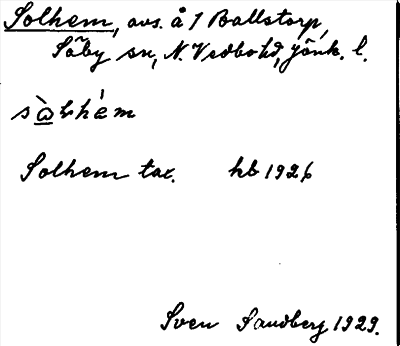 Solhem, avs. å 1 Ballstorp,
Säby sn, N. Vedbo hd, Jönk. l.
sὰ̲ƚhém
Solhem tax. hb 1926
Sven Sandberg 1929.